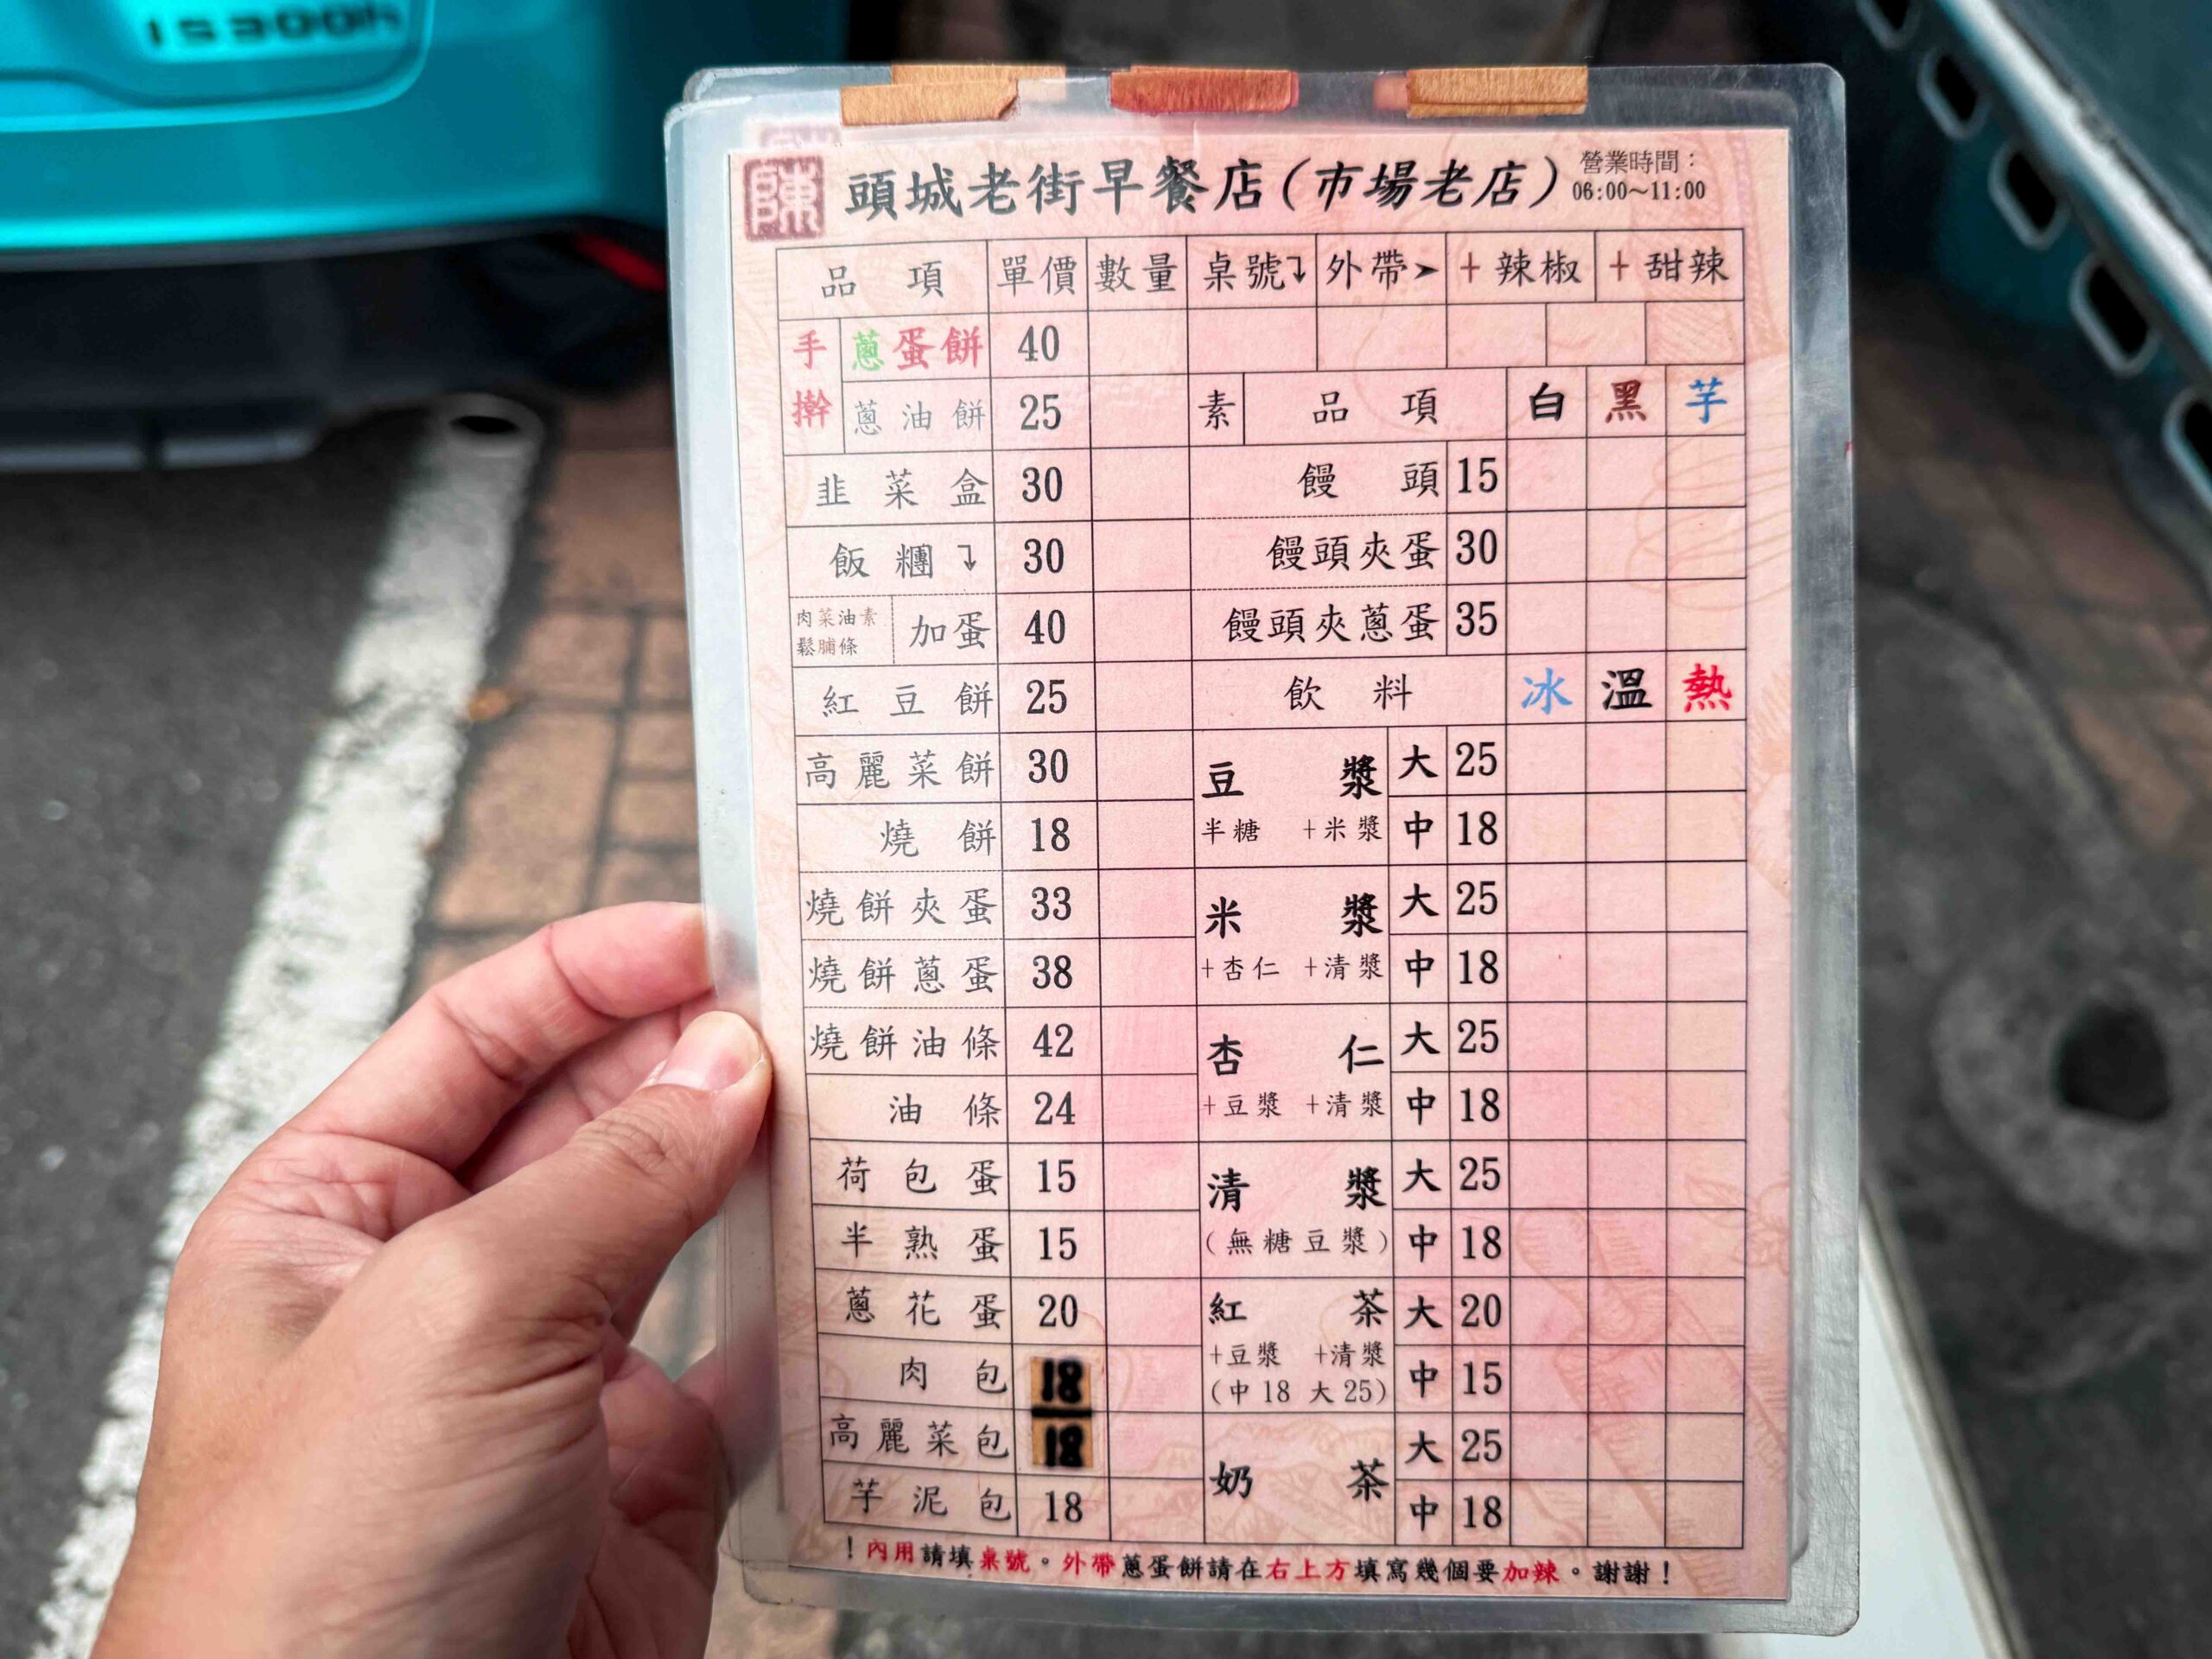 IS300h
陳
頭城老街早餐店(市場老店)
營業時間:
06:00~11:00
品項 單價 數量 桌號↴ 外帶➤ +辣椒 +甜辣
手擀
蔥蛋餅 40
蔥油餅 25
韭菜盒 30
飯糰↴ 30
肉菜油素
鬆脯條
加蛋 40
紅豆餅 25
高麗菜餅 30
燒餅 18
燒餅夾蛋 33
燒餅蔥蛋 38
燒餅油條 42
油條 24
荷包蛋 15
半熟蛋 15
蔥花蛋 20
肉包 18
高麗菜包 18
芋泥包 18
素 品項 白 黑 芋
饅頭 15
饅頭夾蛋 30
饅頭夾蔥蛋 35
飲料 冰 溫 熱
豆漿 大 25
半糖 +米漿 中 18
米漿 大 25
+杏仁 +清漿 中 18
杏仁 大 25
+豆漿 +清漿 中 18
清漿 大 25
(無糖豆漿) 中 18
紅茶 大 20
+豆漿 +清漿
(中18 大25) 中 15
奶茶 大 25
中 18
!內用請填桌號。外帶蔥蛋餅請在右上方填寫幾個要加辣。謝謝!